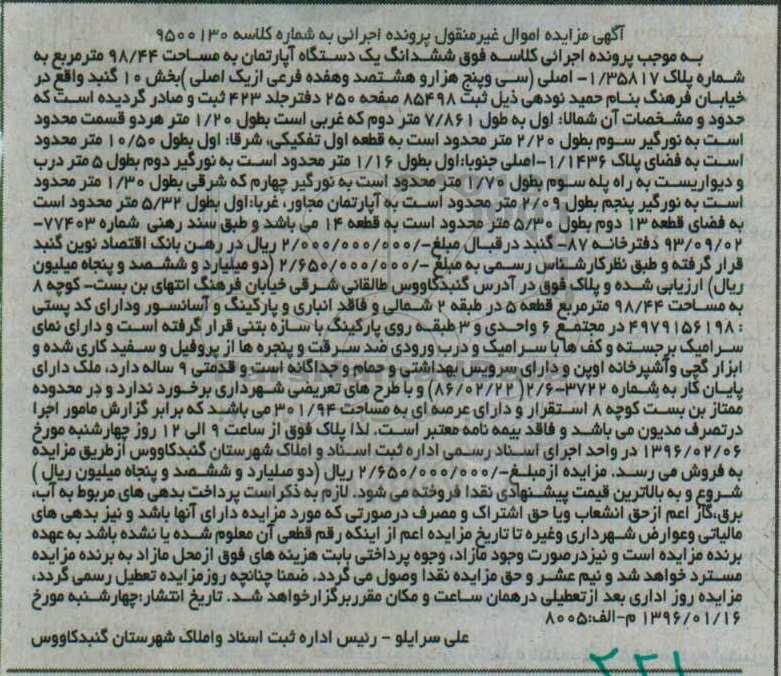 آگهی مزایده اموال غیرمنقول پرونده اجرائی به شماره کلاسه ۹۵۰۰۱۳۰
به موجب پرونده اجرائی کلاسه فوق ششدانگ یک دستگاه آپارتمان به مساحت ۹۸/۴۴ مترمربع به
شماره پلاک ۱/۳۵۸۱۷- اصلی (سی وپنج هزارو هشتصد وهفده فرعی ازیک اصلی )بخش ۱۰ گنبد واقع در
خیابان فرهنگ بنام حمید نودهی ذیل ثبت ۸۵۴۹۸ صفحه ۲۵۰ دفترجلد ۴۲۳ ثبت و صادر گردیده است که
حدود و مشخصات آن شمالا: اول به طول ۷/۸۶۱ متر دوم که غربی است بطول ۱/۲۰ متر هردو قسمت محدود
است به نورگیر سوم بطول ۲/۲۰ متر محدود است به قطعه اول تفکیکی، شرقا: اول بطول ۱۰/۵۰ متر محدود
است به فضای پلاک ۱/۱۱۴۳۶-اصلی جنوبا:اول بطول ۱/۱۶ متر محدود است به نورگیر دوم بطول ۵ متر درب
و دیواریست به راه پله سوم بطول ۱/۷۰ متر محدود است به نورگیر چهارم که شرقی بطول ۱/۳۰ متر محدود
است به نورگیر پنجم بطول ۲/۰۹ متر محدود است به آپارتمان مجاور، غربا:اول بطول ۵/۳۲ متر محدود است
به فضای قطعه ۱۳ دوم بطول ۵/۳۰ متر محدود است به قطعه ۱۴ می باشد و طبق سند رهنی شماره ۷۷۴۰۳-
۹۳/۰۹/۰۲ دفترخانه ۸۷- گنبد درقبال مبلغ-/۲/۰۰۰/۰۰۰/۰۰۰ ریال در رهن بانک اقتصاد نوین گنبد
قرار گرفته و طبق نظرکارشناس رسمی به مبلغ -/۲/۶۵۰/۰۰۰/۰۰۰ (دو میلیارد و ششصد و پنجاه میلیون
ریال) ارزیابی شده و پلاک فوق در آدرس گنبدکاووس طالقانی شرقی خیابان فرهنگ انتهای بن بست- کوچه ۸
به مساحت ۹۸/۴۴ مترمربع قطعه ۵ در طبقه ۲ شمالی و فاقد انباری و پارکینگ و آسانسور ودارای کد پستی
: ۴۹۷۹۱۵۶۱۹۸ در مجتمع ۶ واحدی و ۳ طبقه روی پارکینگ با سازه بتنی قرار گرفته است و دارای نمای
سرامیک برجسته و کف ها با سرامیک و درب ورودی ضد سرقت و پنجره ها از پروفیل و سفید کاری شده و
ابزار گچی وآشپزخانه اوپن و دارای سرویس بهداشتی و حمام و جداگانه است و قدمتی ۹ ساله دارد، ملک دارای
پایان کار به شماره ۳۷۲۲-۲/۶( ۸۶/۰۲/۲۲) و با طرح های تعریضی شهرداری برخورد ندارد و در محدوده
ممتاز بن بست کوچه ۸ استقرار و دارای عرصه ای به مساحت ۳۰۱/۹۴ می باشد که برابر گزارش مامور اجرا
درتصرف مدیون می باشد و فاقد بیمه نامه معتبر است. لذا پلاک فوق از ساعت ۹ الی ۱۲ روز چهارشنبه مورخ
۱۳۹۶/۰۲/۰۶ در واحد اجرای اسناد رسمی اداره ثبت اسناد و املاک شهرستان گنبدکاووس ازطریق مزایده
به فروش می رسد. مزایده ازمبلغ-/۲/۶۵۰/۰۰۰/۰۰۰ ریال (دو میلیارد و ششصد و پنجاه میلیون ریال )
شروع و به بالاترین قیمت پیشنهادی نقدا فروخته می شود. لازم به ذکراست پرداخت بدهی های مربوط به آب،
برق،گاز اعم ازحق انشعاب ویا حق اشتراک و مصرف درصورتی که مورد مزایده دارای آنها باشد و نیز بدهی های
مالیاتی وعوارض شهرداری وغیره تا تاریخ مزایده اعم از اینکه رقم قطعی آن معلوم شده یا نشده باشد به عهده
برنده مزایده است و نیزدرصورت وجود مازاد، وجوه پرداختی بابت هزینه های فوق ازمحل مازاد به برنده مزایده
مسترد خواهد شد و نیم عشر و حق مزایده نقدا وصول می گردد. ضمنا چنانچه روزمزایده تعطیل رسمی گردد،
مزایده روز اداری بعد ازتعطیلی درهمان ساعت و مکان مقرربرگزارخواهد شد. تاریخ انتشار:چهارشنبه مورخ
۱۳۹۶/۰۱/۱۶ م-الف:۸۰۰۵
علی سرایلو - رئیس اداره ثبت اسناد واملاک شهرستان گنبدکاووس
۲۲۱